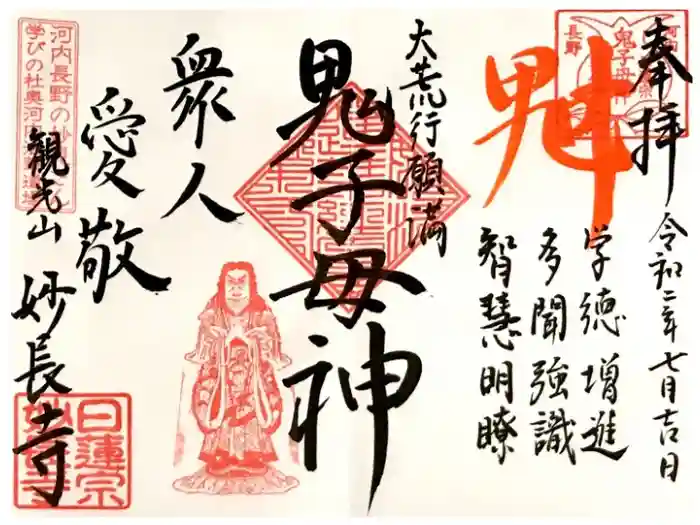 奉拝
令和二年七月吉日
魁
学徳増進
多聞強識
智慧明瞭
大荒行願満
鬼子母神
衆人
愛敬
観光山
妙長寺
日蓮宗
妙長寺
鬼子母神
長野
河内長野の
学びの杜奥河内